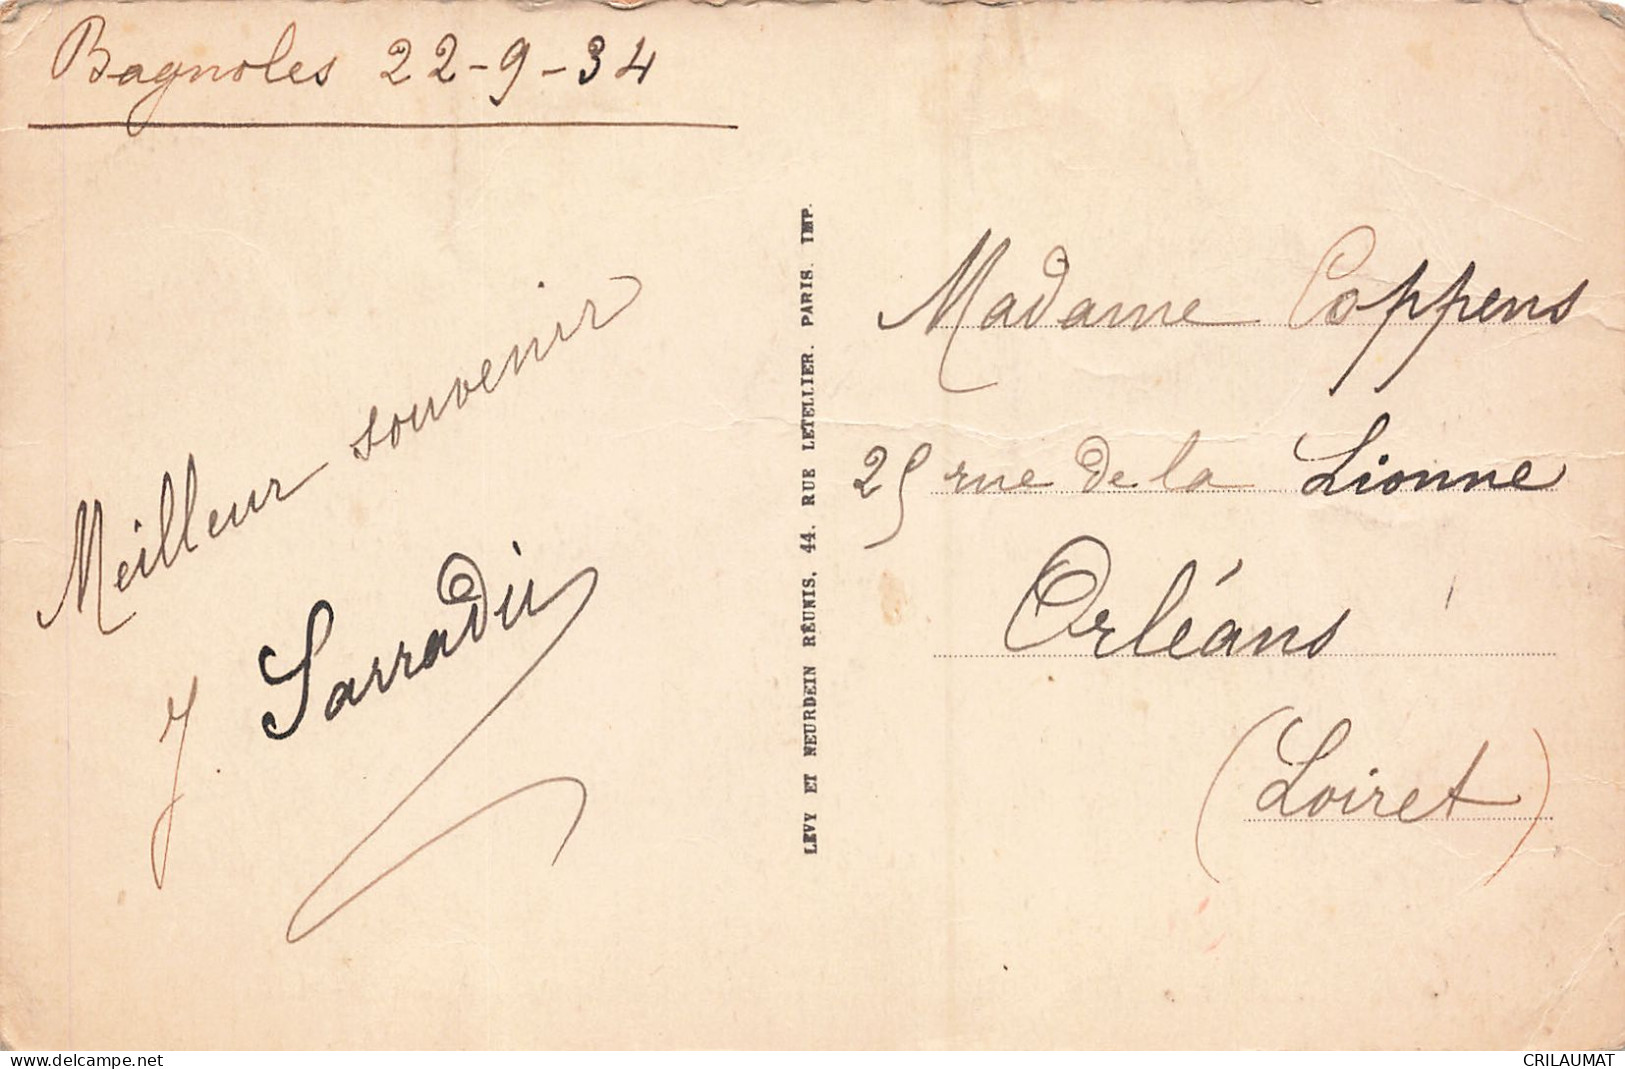 Bagnoles 22-9-34
Meilleur souvenir
J. Sarradin
LEVY ET NEURDEIN RÉUNIS, 44, RUE LETELLIER. PARIS. IMP.
Madame Coppens
25 rue de la Lionne
Orléans
(Loiret)
www.delcampe.net
CRILAUMAT